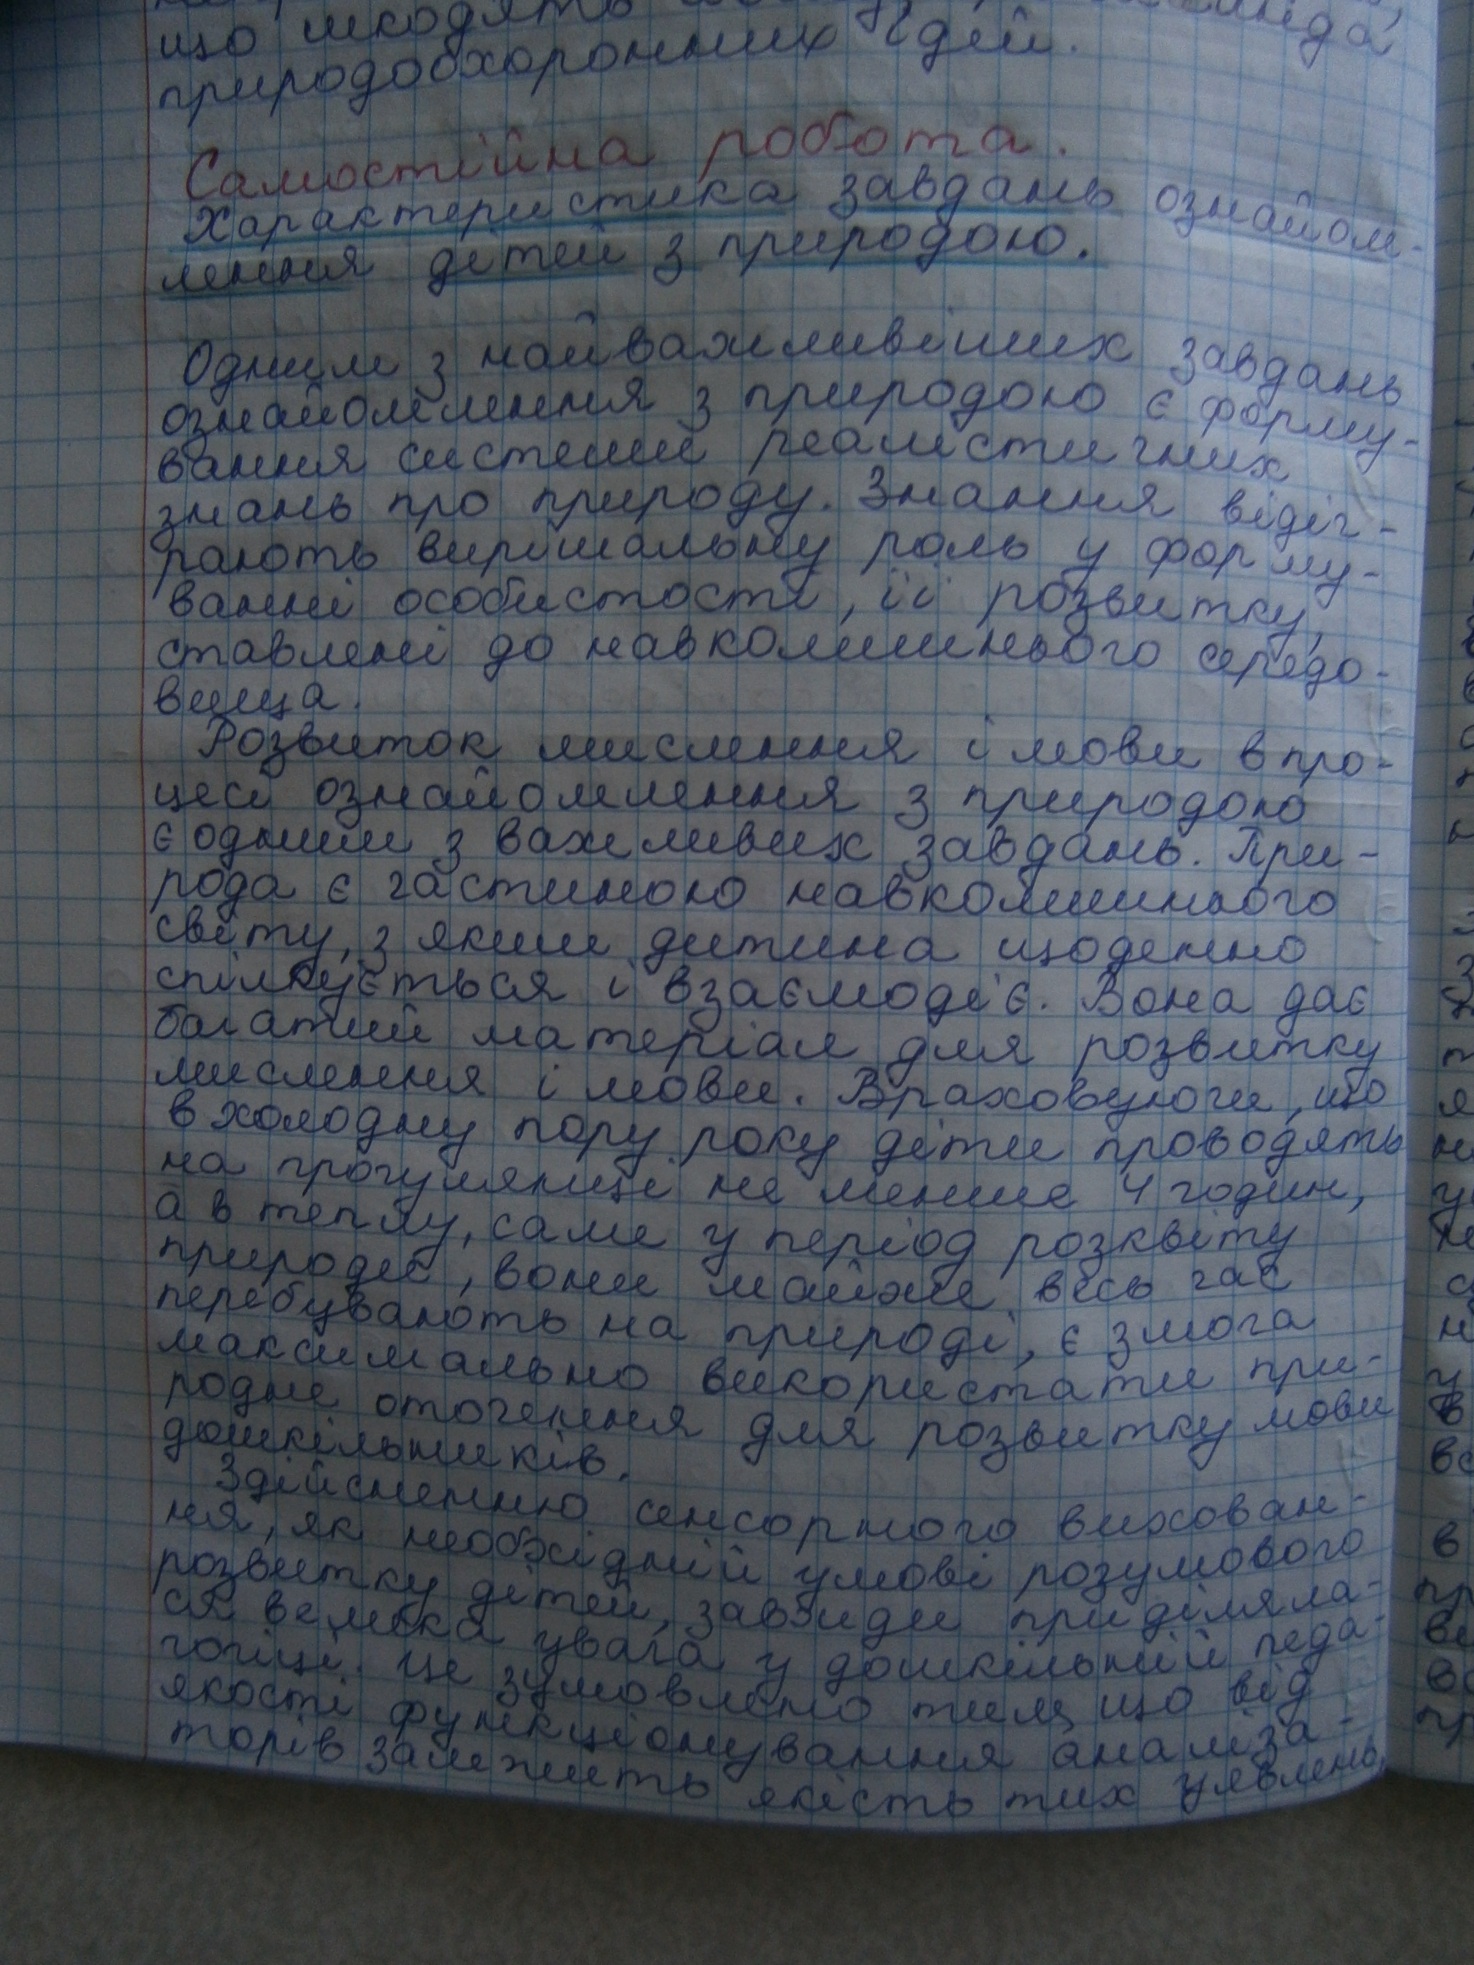 що шкодять
природоохоронних ідей.
Самостійна робота.
Характеристика завдань ознайом-
лення дітей з природою.
Одним з найважливіших завдань
ознайомлення з природою є форму-
вання системи реалістичних
знань про природу. Знання відіг-
рають вирішальну роль у форму-
ванні особистості, її розвитку,
ставлені до навколишнього середо-
вища.
Розвиток мислення і мови в про-
цесі ознайомлення з природою
є одним з важливих завдань. При-
рода є частиною навколишнього
світу, з яким дитина щоденно
спілкується і взаємодіє. Вона дає
багатий матеріал для розвитку
мислення і мови. Враховуючи, що
в холодну пору року діти проводять
на прогулянці не менше 4 годин,
а в теплу, саме у період розквіту
природи, вони майже весь час
перебувають на природі, є змога
максимально використати при-
родне оточення для розвитку мови
дошкільників.
Здійсненню сенсорного вихован-
ня, як необхідній умові розумового
розвитку дітей, завжди приділяла-
ся велика увага у дошкільній педа-
гогіці. Це зумовлено тим, що від
якості функціонування аналіза-
торів залежить якість тих уявлень,